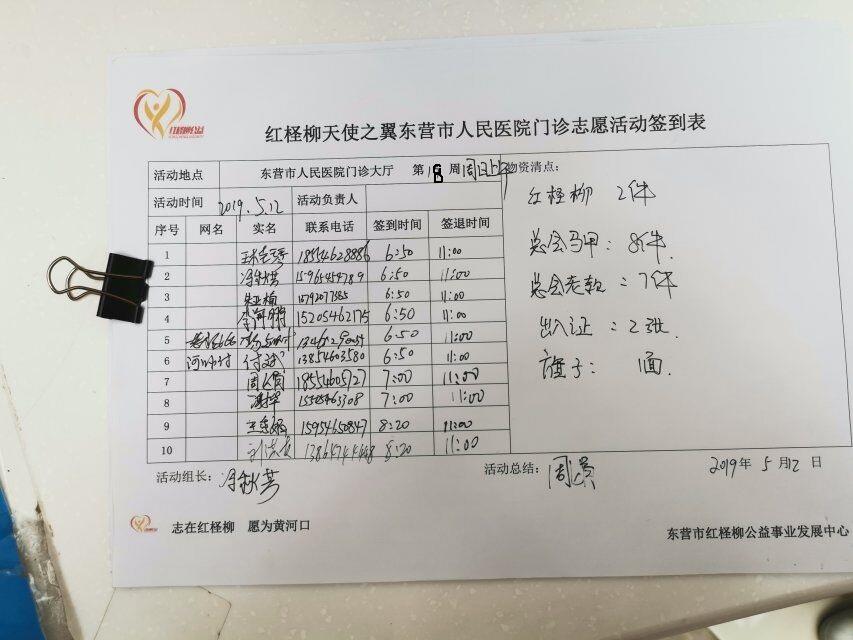 红柽柳天使之翼东营市人民医院门诊志愿活动签到表
活动地点 东营市人民医院门诊大厅 第 周 周日上午 物资清点：
活动时间 2019.5.12 活动负责人
序号 网名 实名 联系电话 签到时间 签退时间
红柽柳 2件
总会马甲：8件
总会老款：7件
出入证：2张
旗子：1面.
1 18554628886 6:50 11:00
2 冯秋芳 15965454789 6:50 11:00
3 6:50 11:00
4 15205462175 6:50 11:00
5 6:50 11:00
6 付斌 13854603580 6:50 11:00
7 18554605727 7:00 11:00
8 15505463308 7:00 11:00
9 15954650847 8:20 11:00
10 8:20 11:00
活动组长：冯秋芳 活动总结： 2019年 5月12日
志在红柽柳 愿为黄河口
东营市红柽柳公益事业发展中心